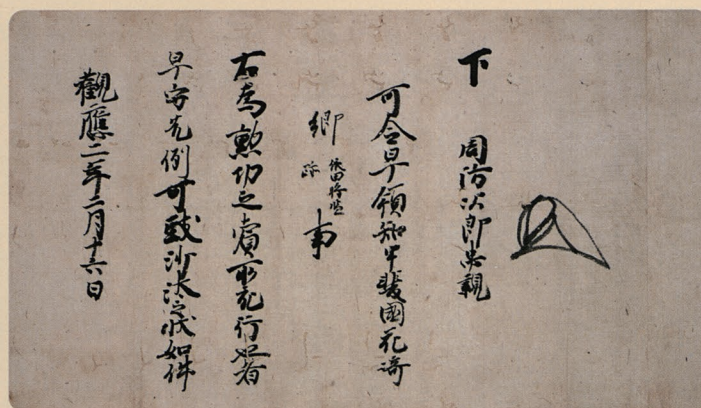 下 周防次郎忠親
可令早領知甲斐國花崎
郷 依田将監跡 事
右為勲功之賞所宛行也者
早守先例可致沙汰之状如件
觀應二年二月十六日